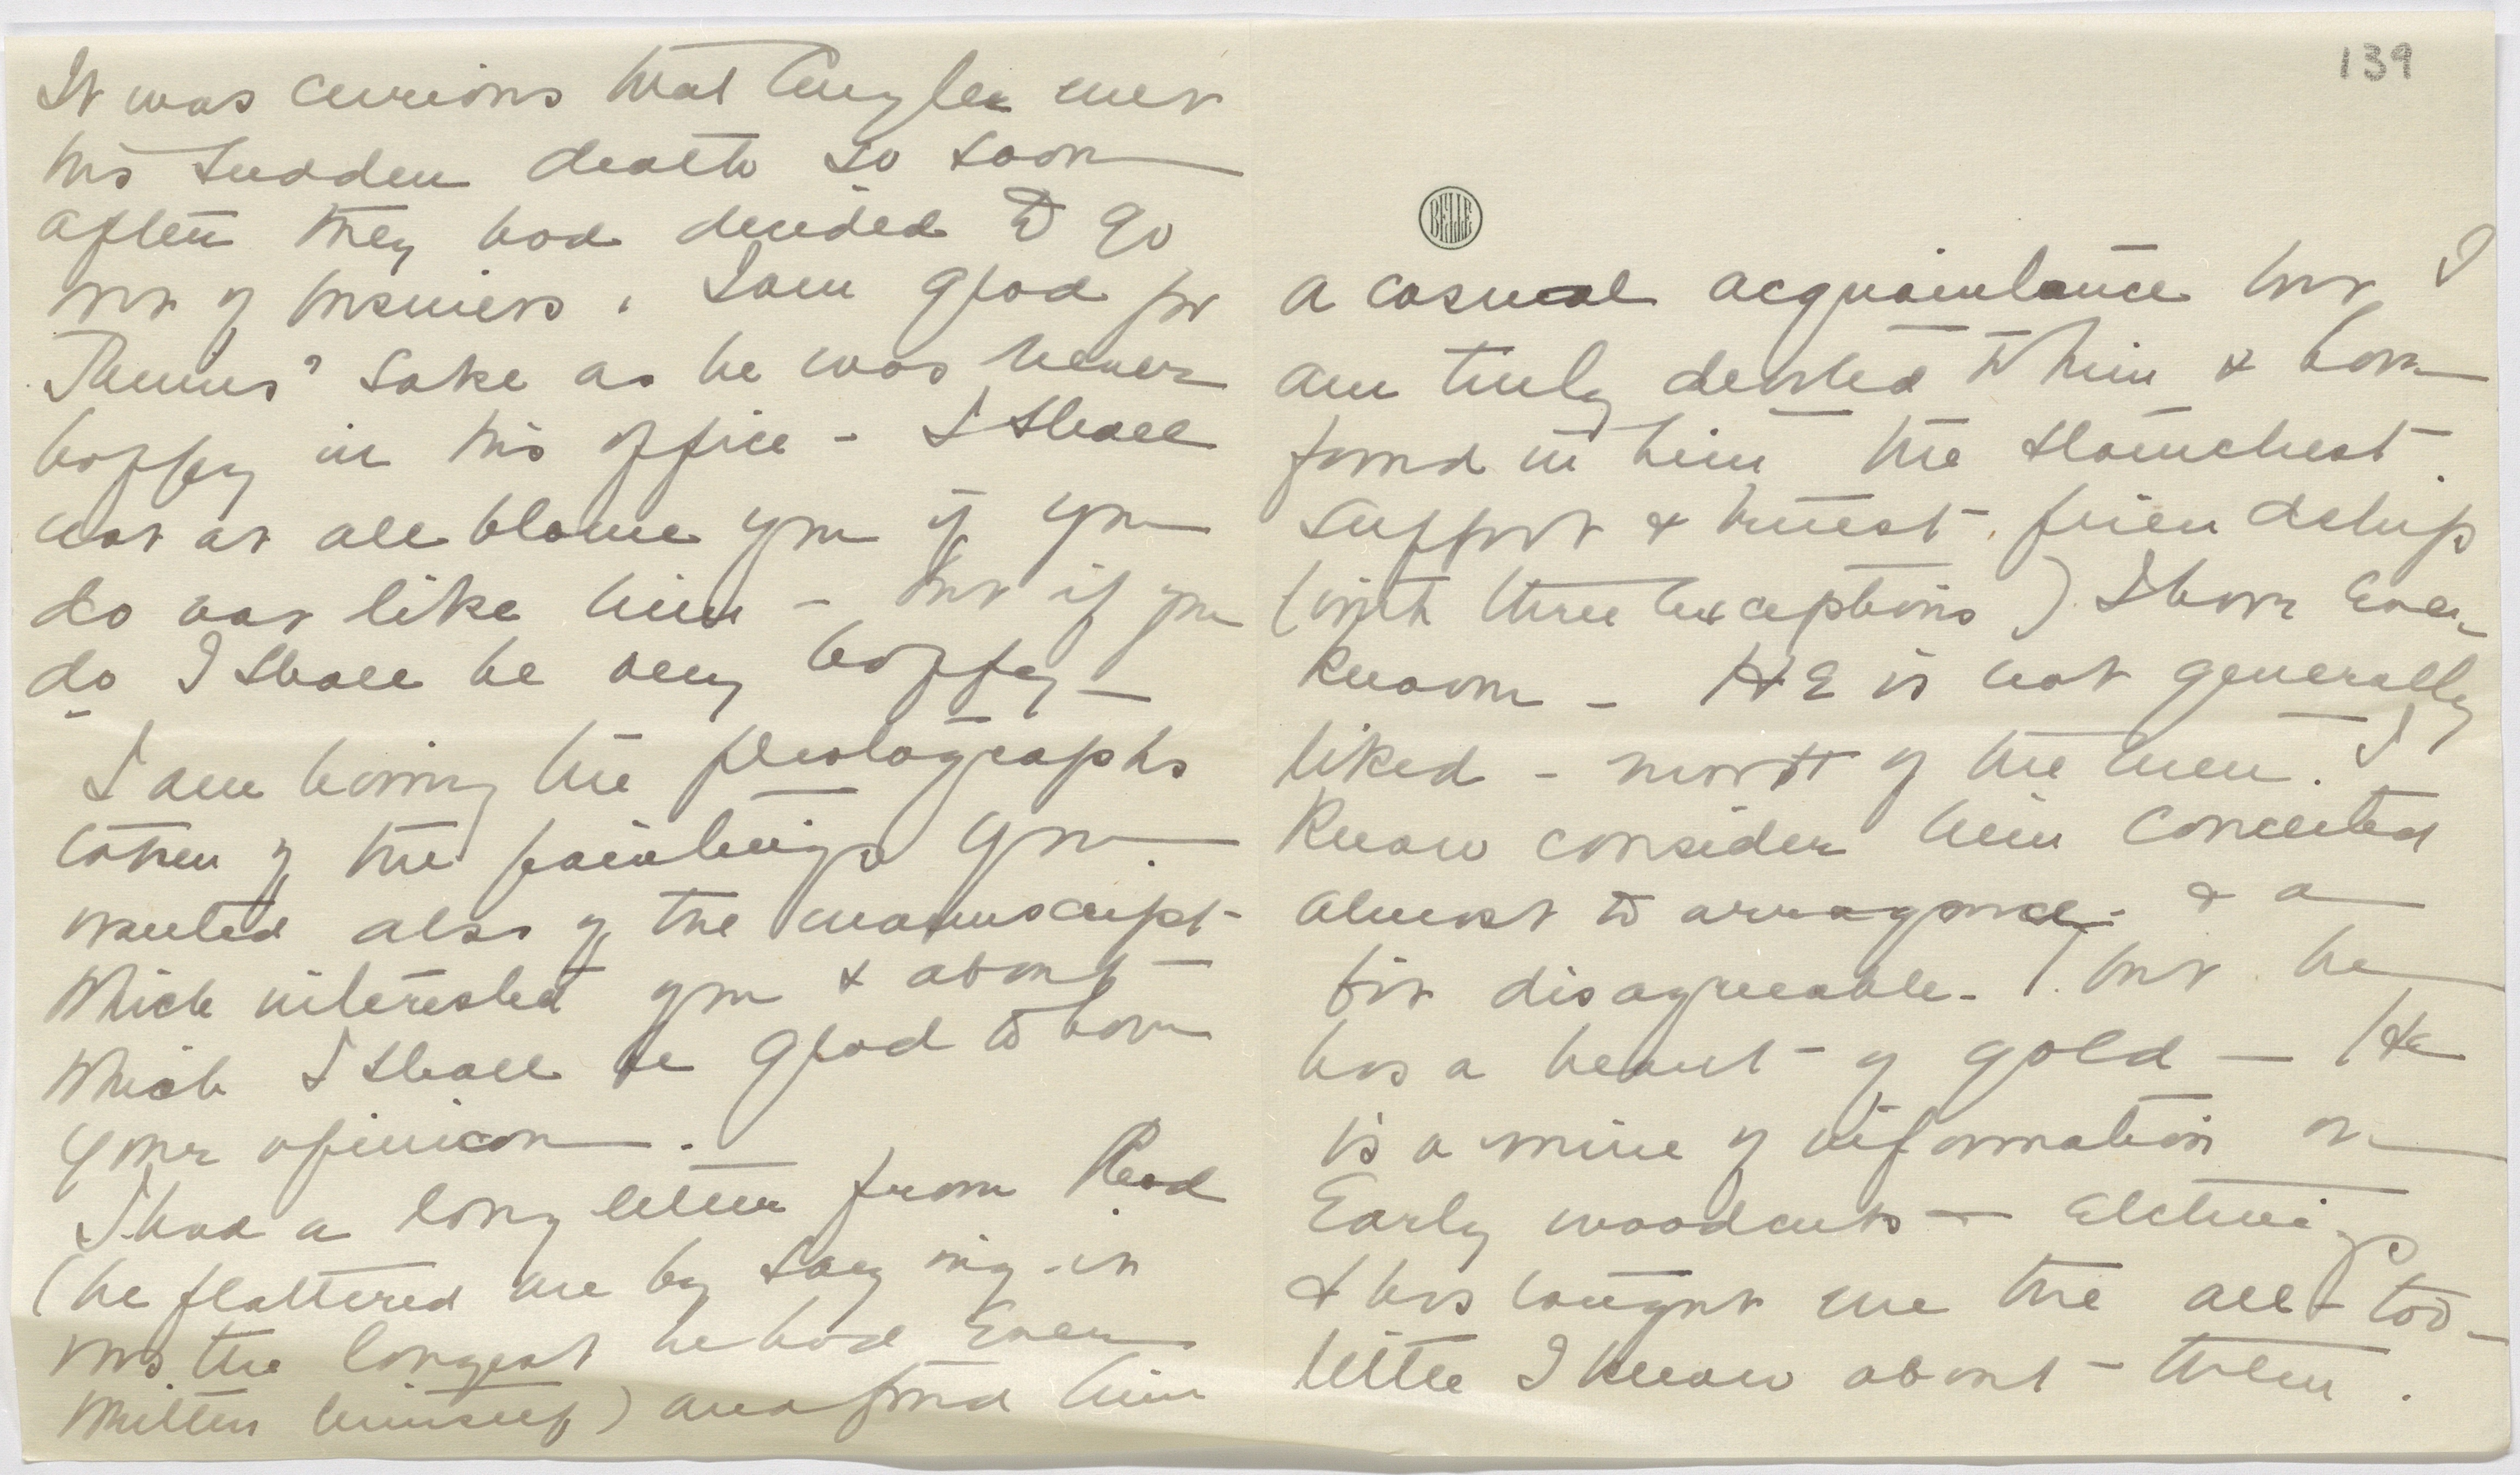 It was curious that Cugler met
his sudden death so soon
after they had decided to go
out of business. I am glad for
Thenius' sake as he was never
happy in his office - I shall
not at all blame you if you
do not like him - but if you
do I shall be very happy -
I am having the photographs
taken of the paintings you
wanted also of the manuscript
which interested you & about
which I shall be glad to have
your opinion.
I had a long letter from Read
(he flattered me by saying it
was the longest he had ever
written himself) and found him
139
BELLE
a casual acquaintance but I
am truly devoted to him & have
found in him the staunchest
support & truest friendship
(with three exceptions) I have ever
known - HE is not generally
liked - most of the men I
know consider him conceited
almost to arrogance & a
bit disagreeable - but he
has a heart of gold — He
is a mine of information on
Early woodcuts — etchings
& has taught me the all too
little I know about them.